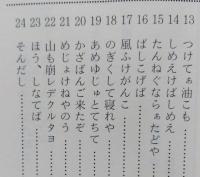 13 つけてぁ油こも
14 しめえけばしめえ
15 たんねぐならぁただや
16 ばしこげば
17 風ふけがんこ
18 のぎくして寝れや
19 あめゆじゅとてちて
20 かざばんごご来たぞ
21 めじょけねやのう
22 山も崩レデクルタヨ
23 ほう、しなてば
24 そんだし